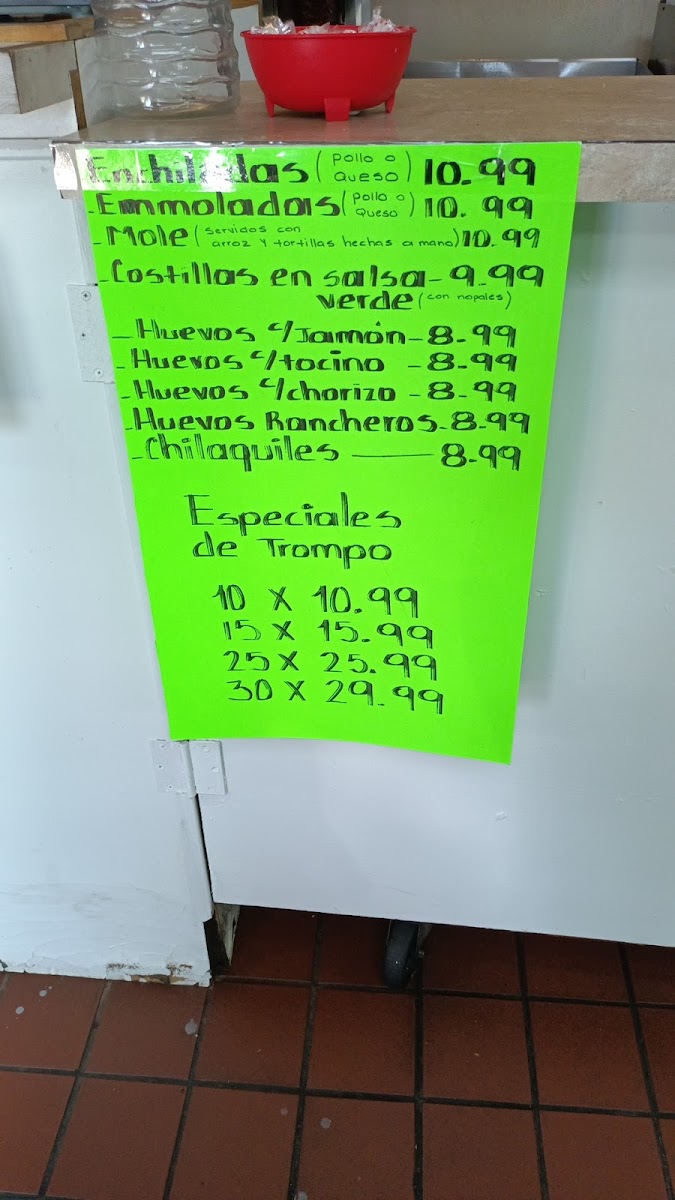 Enchiladas (pollo o queso) 10.99
- Enmoladas (pollo o queso) 10.99
- Mole (servidos con arroz y tortillas hechas a mano) 10.99
- Costillas en salsa - 9.99
verde (con nopales)
- Huevos c/Jamón - 8-99
- Huevos c/tocino - 8-99
- Huevos c/chorizo - 8-99
- Huevos Rancheros - 8-99
- Chilaquiles — 8-99
Especiales
de Trompo
10 X 10.99
15 X 15.99
25 X 25.99
30 X 29.99